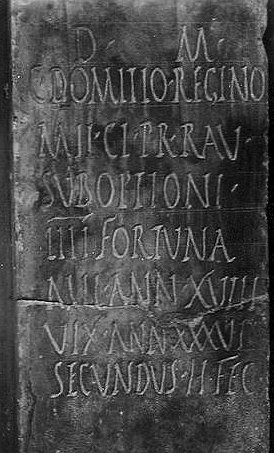 D · M ·
C · DOMITIO · REGINO
MIL · CL · PR · RAV ·
SVBOPTIONI ·
IIII FORTVNA
MIL · ANN · XVIIII
VIX · ANN · XXXVI
SECVNDVS · H · FEC